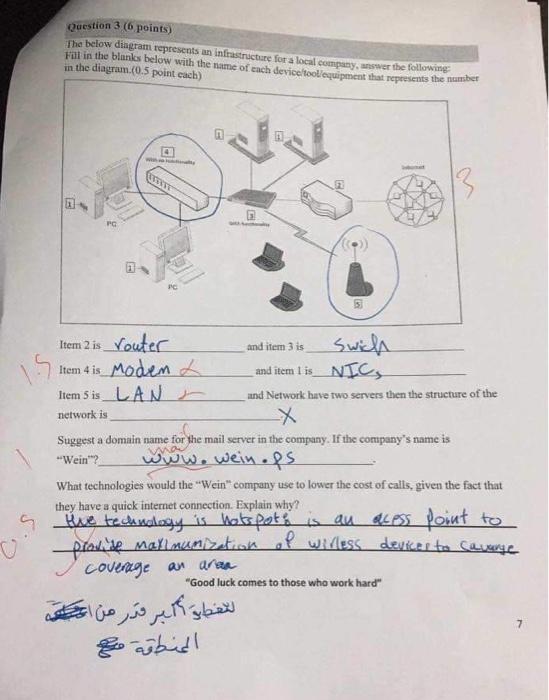 Question 3 (6 points)
The below diagram represents an infrastructure for a local company, answer the following:
Fill in the blanks below with the name of each device/tool/equipment that represents the number
in the diagram.(0.5 point each)
1
1
4
With no functionality
Internet
3
2
1
PC
3
With functionality
1
PC
5
Item 2 is router and item 3 is Swich
1.5
Item 4 is Modem and item 1 is NICs
Item 5 is LAN and Network have two servers then the structure of the
network is X
Suggest a domain name for the mail server in the company. If the company's name is
1
"Wein"? www.wein.ps
What technologies would the "Wein" company use to lower the cost of calls, given the fact that
they have a quick internet connection. Explain why?
0.5
technology is hotspots is an acess point to
provide maximunization of wirless devices to
coverage an area
"Good luck comes to those who work hard"
لتغطية أكبر قدر من
المنطقة
7